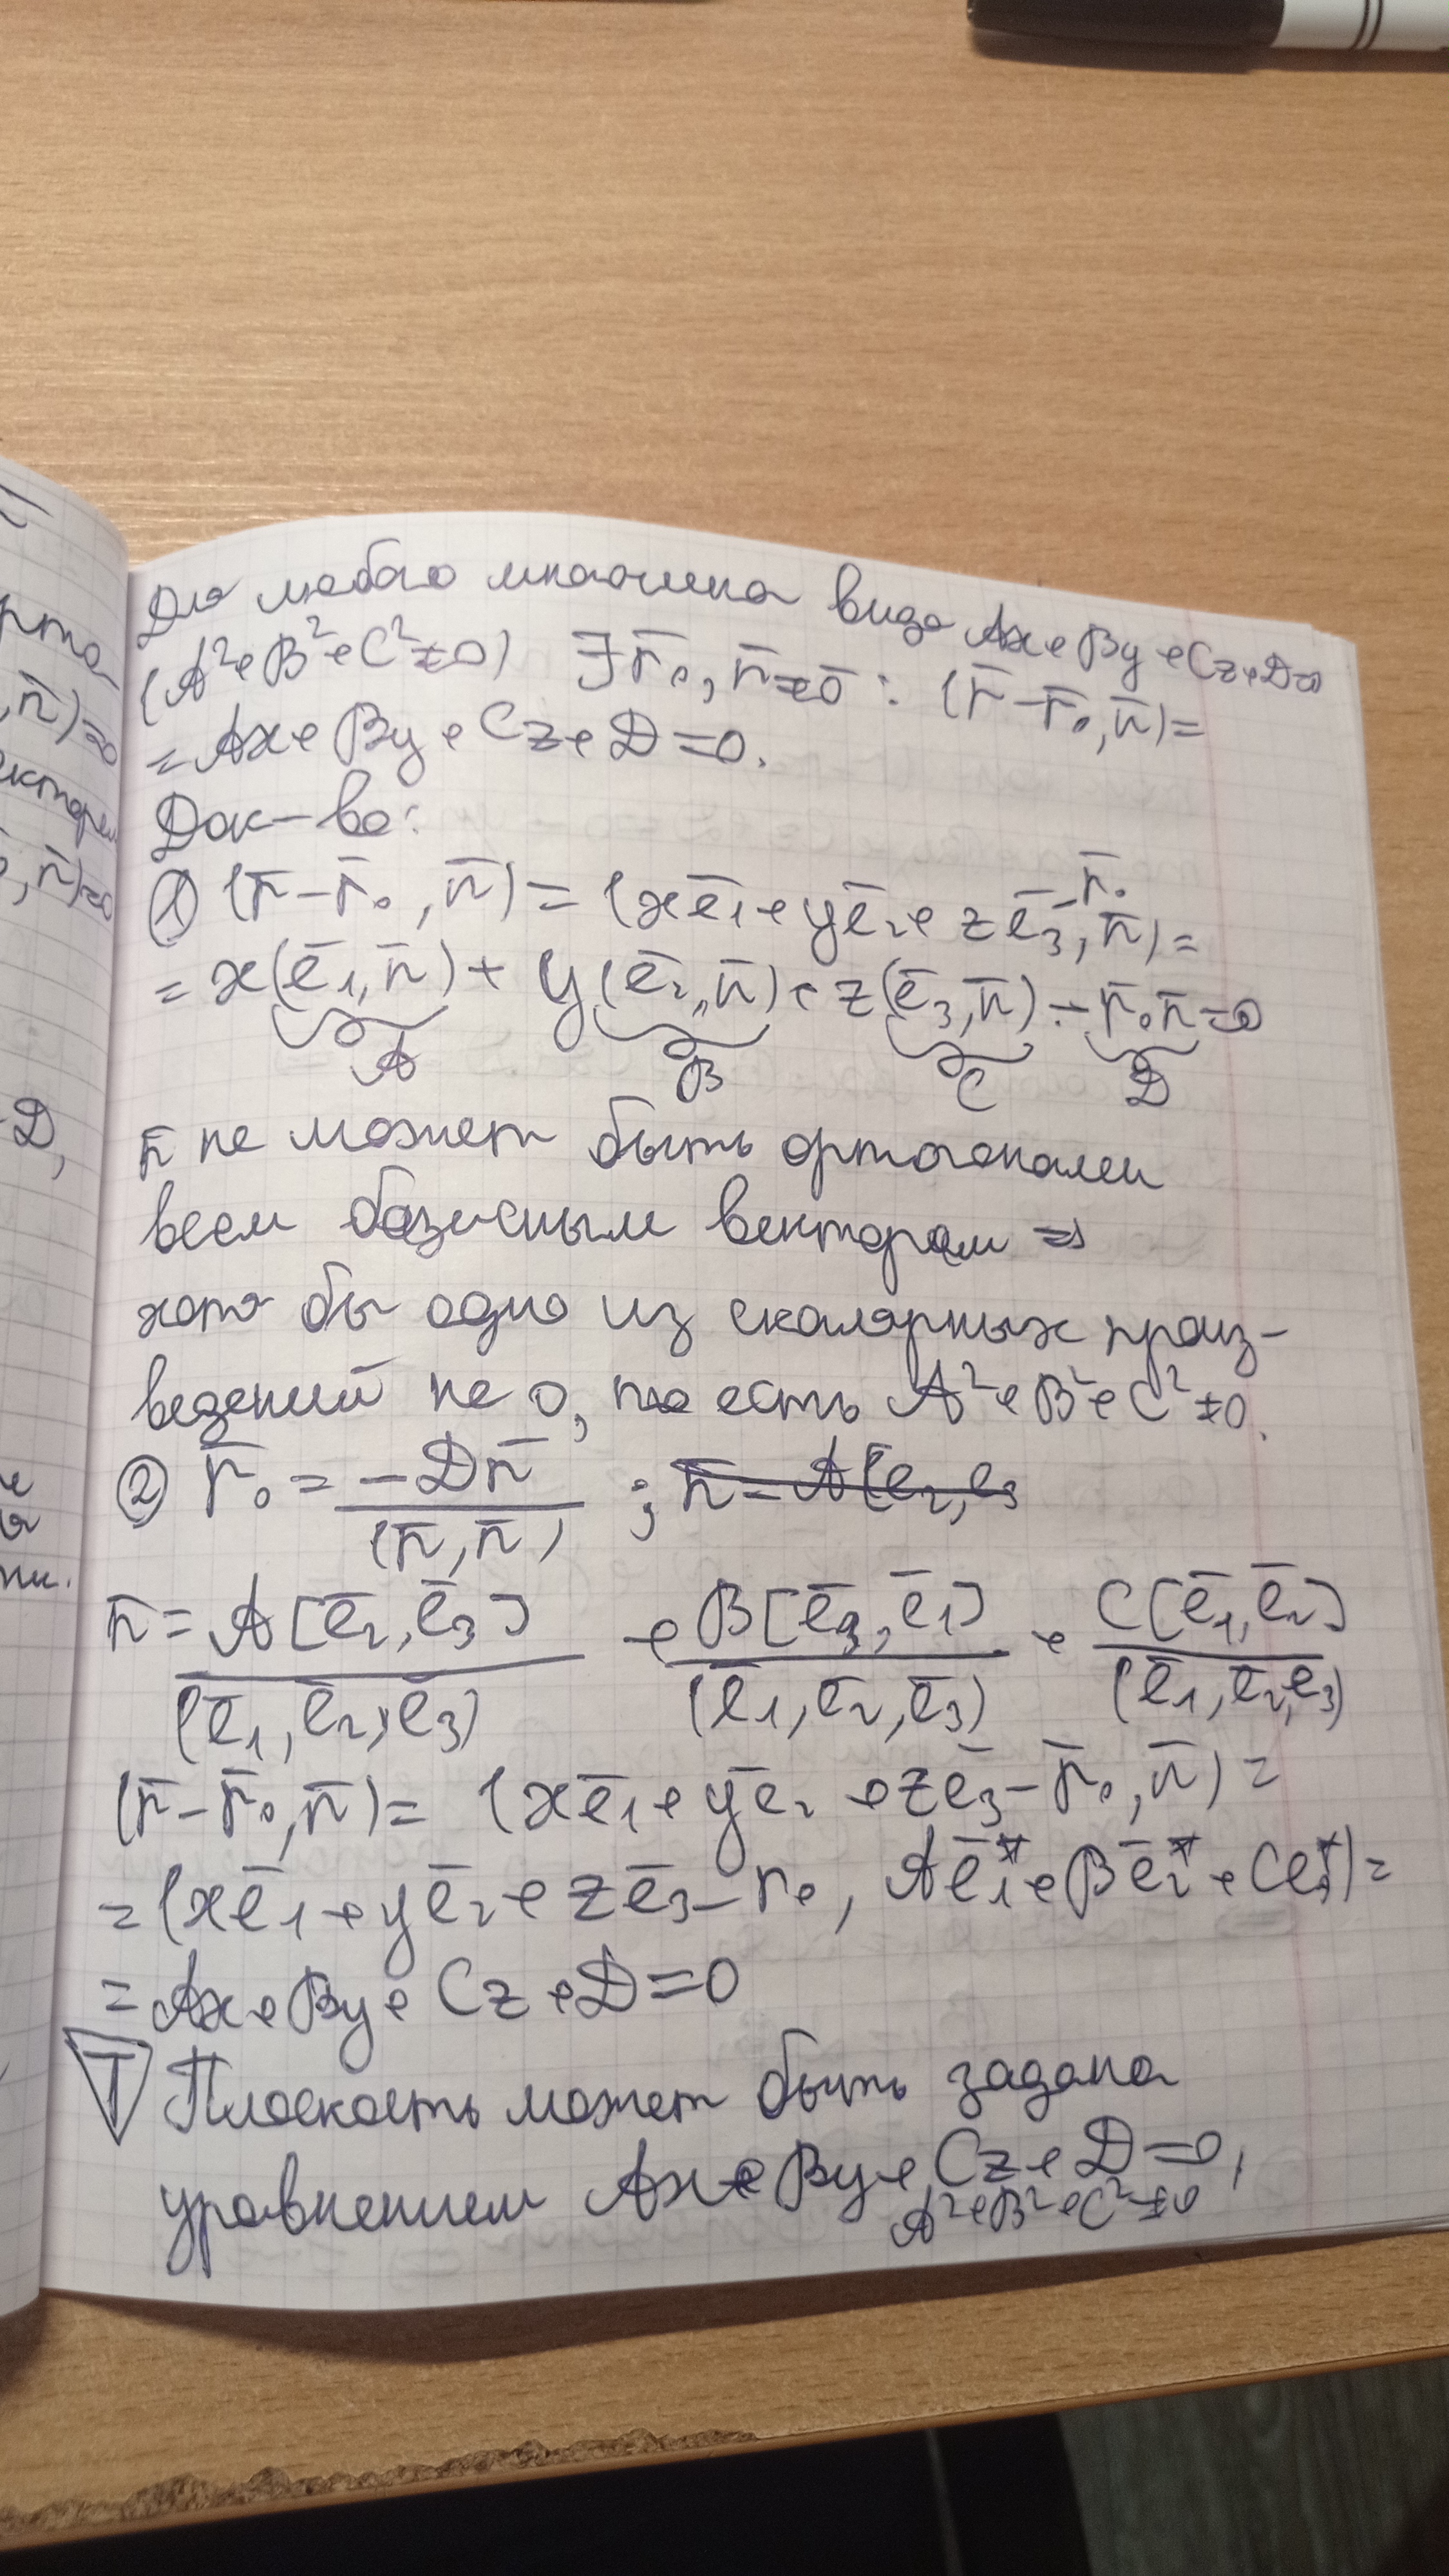 Для любого многочлена вида Ax+By+Cz+D=0
(A²+B²+C²≠0) ∃r̄₀, n̄≠ō : (r̄-r̄₀, n̄)=
=Ax+By+Cz+D=0.
Док-во:
① (r̄-r̄₀, n̄)=(xē₁+yē₂+zē₃-r̄₀, n̄)=
=x(ē₁,n̄)+y(ē₂,n̄)+z(ē₃,n̄)-r̄₀n̄=0
A B C D
n̄ не может быть ортогонален
всем базисным векторам ⇒
хотя бы одно из скалярных произ-
ведений не 0, то есть A²+B²+C²≠0.
② r̄₀ = -Dn̄/(n̄,n̄) ; n̄=A[ē₂,e₃
n̄ = A[ē₂,ē₃]/(ē₁,ē₂,ē₃) + B[ē₃,ē₁]/(ē₁,ē₂,ē₃) + C[ē₁,ē₂]/(ē₁,ē₂,ē₃)
(r̄-r̄₀,n̄)=(xē₁+yē₂+zē₃-r̄₀,n̄)=
=(xē₁+yē₂+zē₃-r₀, Aē₁*+Bē₂*+Ce₃*)=
=Ax+By+Cz+D=0
T Плоскость может быть задана
уравнением Ax+By+Cz+D=0,
A²+B²+C²≠0
рто
,n̄)=0
ектором
,n̄)=0
D,